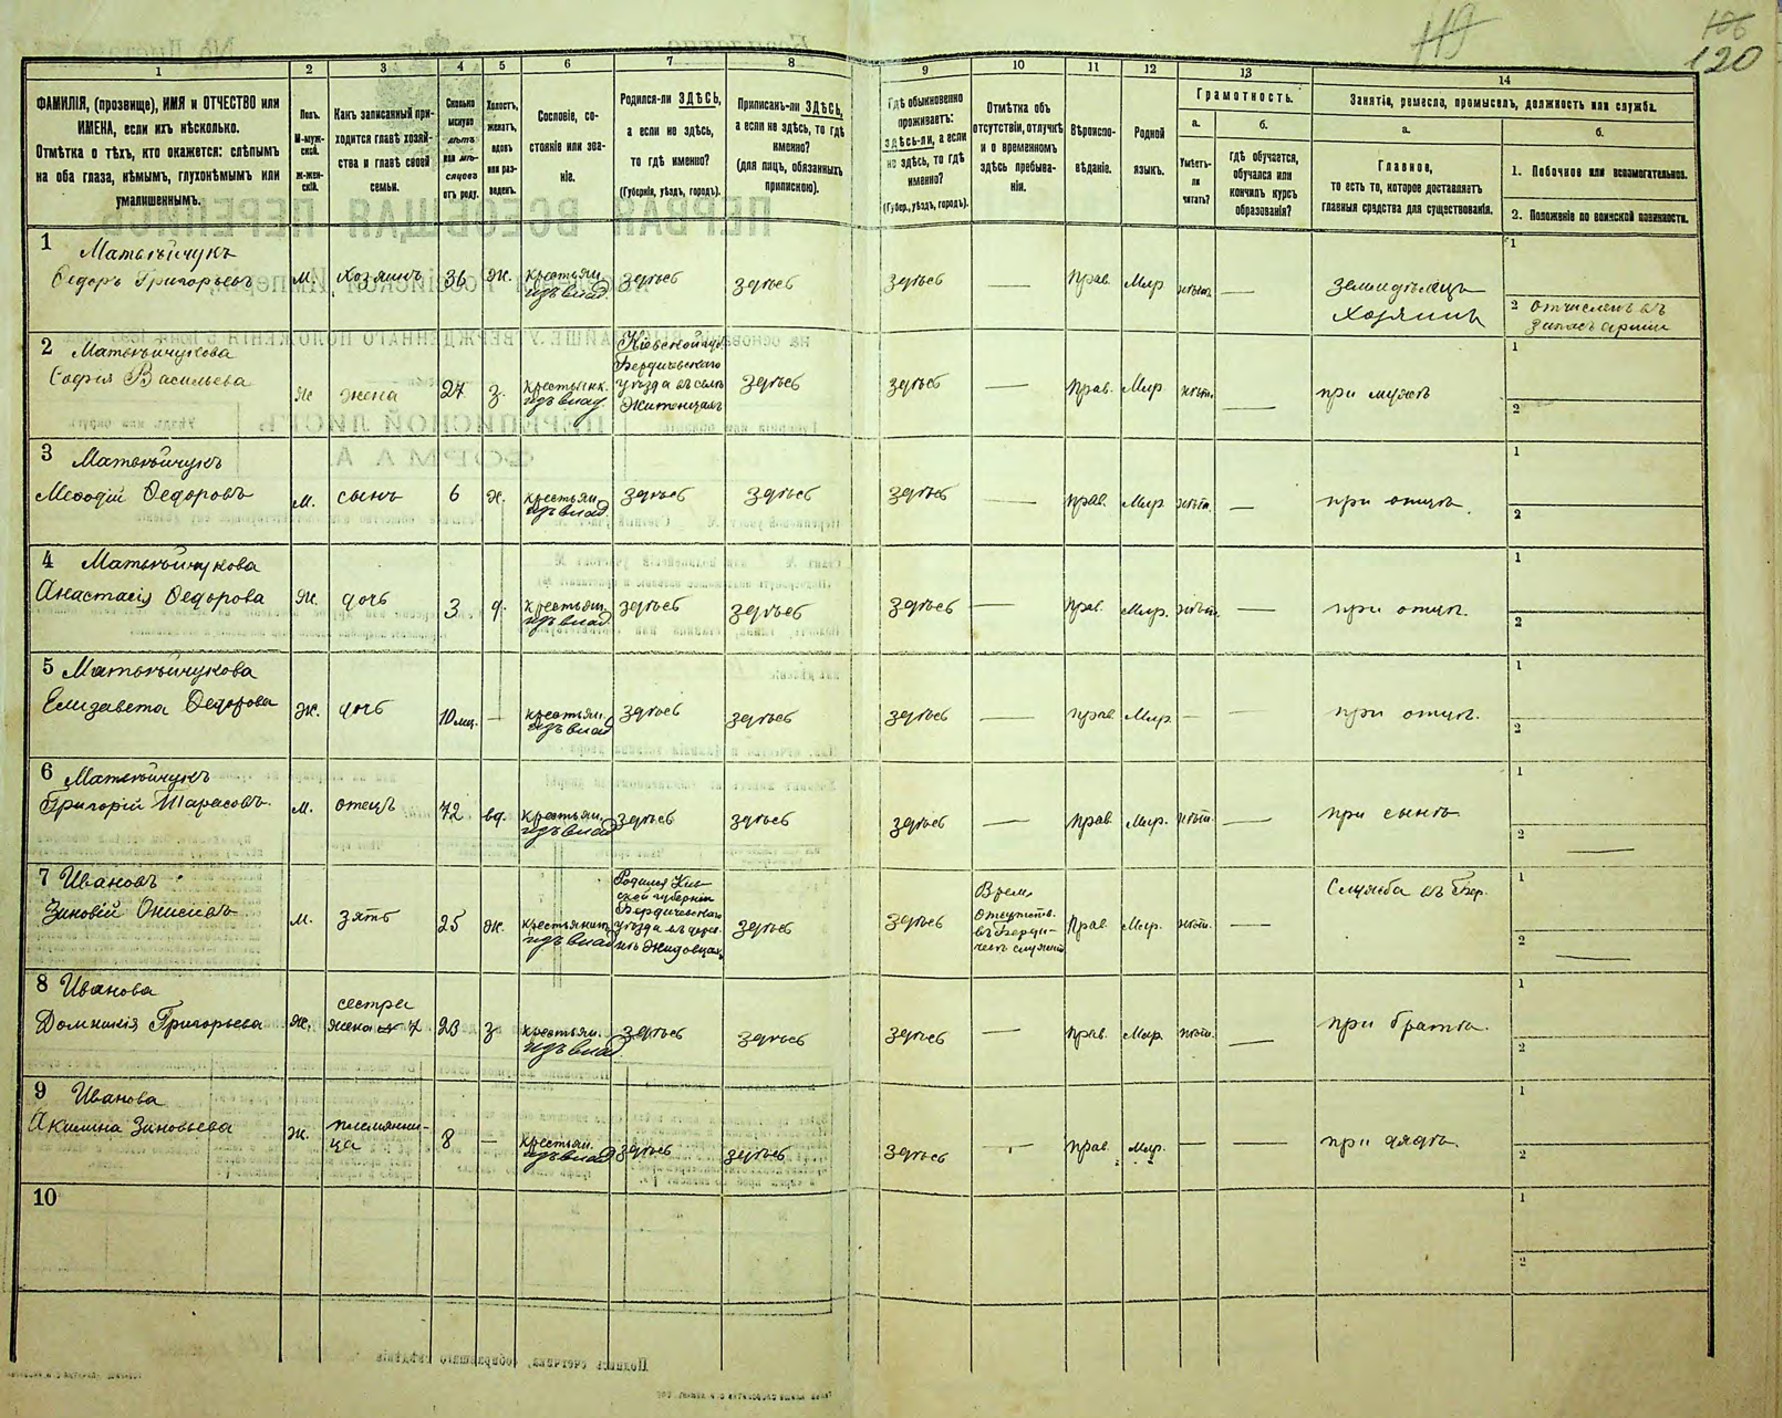 119
106
120
1
2
3
4
5
6
7
8
9
10
11
12
13
14
ФАМИЛІЯ, (прозвище), ИМЯ и ОТЧЕСТВО или
ИМЕНА, если ихъ нѣсколько.
Отмѣтка о тѣхъ, кто окажется: слѣпымъ
на оба глаза, нѣмымъ, глухонѣмымъ или
умалишеннымъ.
Полъ.
М-муж-
ской.
Ж-жен-
скій.
Какъ записанный при-
ходится главѣ хозяй-
ства и главѣ своей
семьи.
Сколько
минуло
лѣтъ
или мѣ-
сяцевъ
отъ роду.
Холостъ,
женатъ,
вдовъ
или раз-
веденъ.
Сословіе, со-
стояніе или зва-
ніе.
Родился-ли ЗДѢСЬ,
а если не здѣсь,
то гдѣ именно?
(Губернія, уѣздъ, городъ).
Приписанъ-ли ЗДѢСЬ,
а если не здѣсь, то гдѣ
именно?
(для лицъ, обязанныхъ
припискою).
Гдѣ обыкновенно
проживаетъ:
ЗДѢСЬ-ли, а если
не здѣсь, то гдѣ
именно?
(Губер., уѣздъ, городъ).
Отмѣтка объ
отсутствіи, отлучкѣ
и о временномъ
здѣсь пребыва-
ніи.
Вѣроиспо-
вѣданіе.
Родной
языкъ.
Грамотность.
а.
Умѣетъ-
ли
читать?
б.
гдѣ обучается,
обучался или
кончилъ курсъ
образованія?
Занятіе, ремесло, промыселъ, должность или служба.
а.
Главное,
то есть то, которое доставляетъ
главныя средства для существованія.
б.
1. Побочное или вспомогательное.
2. Положеніе по воинской повинности.
1 Матвѣйчукъ
Ѳедоръ Григорьевъ
М.
хозяинъ
36
ж.
крестьян.
изъ влад.
здѣсь
здѣсь
здѣсь
—
Прав.
Мир
нѣтъ
—
земледѣлецъ
хозяинъ
1
2 отчисленъ въ
запасъ арміи
2 Матвѣйчукова
Софія Васильева
Ж
жена
27
з.
крестьянк.
изъ влад.
Кіевской губ.
Бердичевского
уѣзда въ селѣ
Житенцахъ
здѣсь
здѣсь
—
Прав.
Мир
нѣтъ
—
при мужѣ
1
2
3 Матвѣйчукъ
Меѳодій Ѳедоровъ
М.
сынъ
6
х.
крестьян.
изъ влад.
здѣсь
здѣсь
здѣсь
—
прав.
Мир.
нѣтъ.
—
при отцѣ.
1
2
4 Матвѣйчукова
Анастасія Ѳедорова
Ж.
дочь
3
д.
крестьян.
изъ влад.
здѣсь
здѣсь
здѣсь
—
прав.
Мир.
нѣтъ.
—
при отцѣ.
1
2
5 Матвѣйчукова
Елизавета Ѳедорова
Ж.
дочь
10 мц.
—
крестьян.
изъ влад
здѣсь
здѣсь
здѣсь
—
прав
Мир.
—
—
при отцѣ.
1
2
6 Матвѣйчукъ
Григорій Тарасовъ.
М.
отецъ
72
вд.
крестьян.
изъ влад
здѣсь
здѣсь
здѣсь
—
прав
Мир.
нѣтъ.
—
при сынѣ
1
2 —
7 Ивановъ
Зиновій
М.
зять
25
ж.
крестьянинъ
изъ влад
Родился Кіев
ской губерніи
Бердичевского
уѣзда въ дерев
нѣ Жидовцахъ
здѣсь
здѣсь
Врем.
Отсутств.
въ Берди-
чевѣ
Прав
Мир.
нѣтъ.
—
Служба въ Бер.
1
2 —
8 Иванова
Домникія Григорьева
Ж.
сестра
жена 7
23
з
крестьян.
изъ влад.
здѣсь
здѣсь
здѣсь
—
прав.
Мир
нѣтъ.
—
при братѣ.
1
2
9 Иванова
Акилина Зиновьева
Ж.
племянни-
ца
8
—
крестьян.
изъ влад
здѣсь
здѣсь
здѣсь
—
прав.
Мир.
—
—
при дядѣ.
1
2
10
1
2